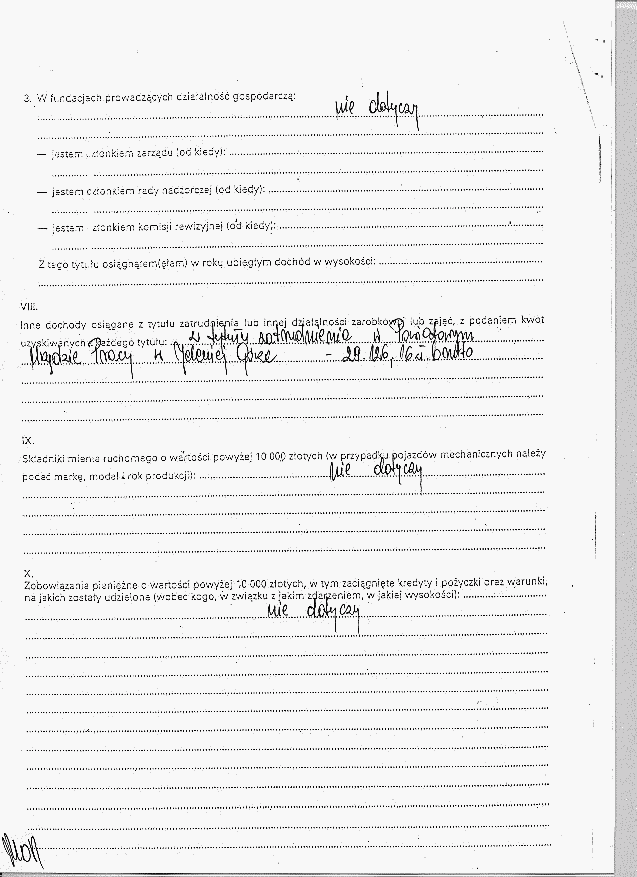 3. W fundacjach prowadzących działalność gospodarczą:
nie dotyczy
— jestem członkiem zarządu (od kiedy):
— jestem członkiem rady nadzorczej (od kiedy):
— jestem członkiem komisji rewizyjnej (od kiedy):
Z tego tytułu osiągnąłem(ęłam) w roku ubiegłym dochód w wysokości:
VIII.
Inne dochody osiągane z tytułu zatrudnienia lub innej działalności zarobkowej lub zajęć, z podaniem kwot
uzyskiwanych z każdego tytułu: z tytułu zatrudnienia w Powiatowym
Urzędzie Pracy w Jeleniej Górze - 29.126,16 zł brutto
IX.
Składniki mienia ruchomego o wartości powyżej 10 000 złotych (w przypadku pojazdów mechanicznych należy
podać markę, model i rok produkcji):
nie dotyczy
X.
Zobowiązania pieniężne o wartości powyżej 10 000 złotych, w tym zaciągnięte kredyty i pożyczki oraz warunki,
na jakich zostały udzielone (wobec kogo, w związku z jakim zdarzeniem, w jakiej wysokości):
nie dotyczy